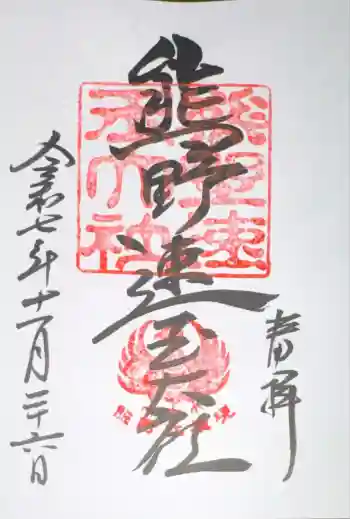 奉拝
熊野速玉大社
熊野速玉大社
令和七年十一月二十六日